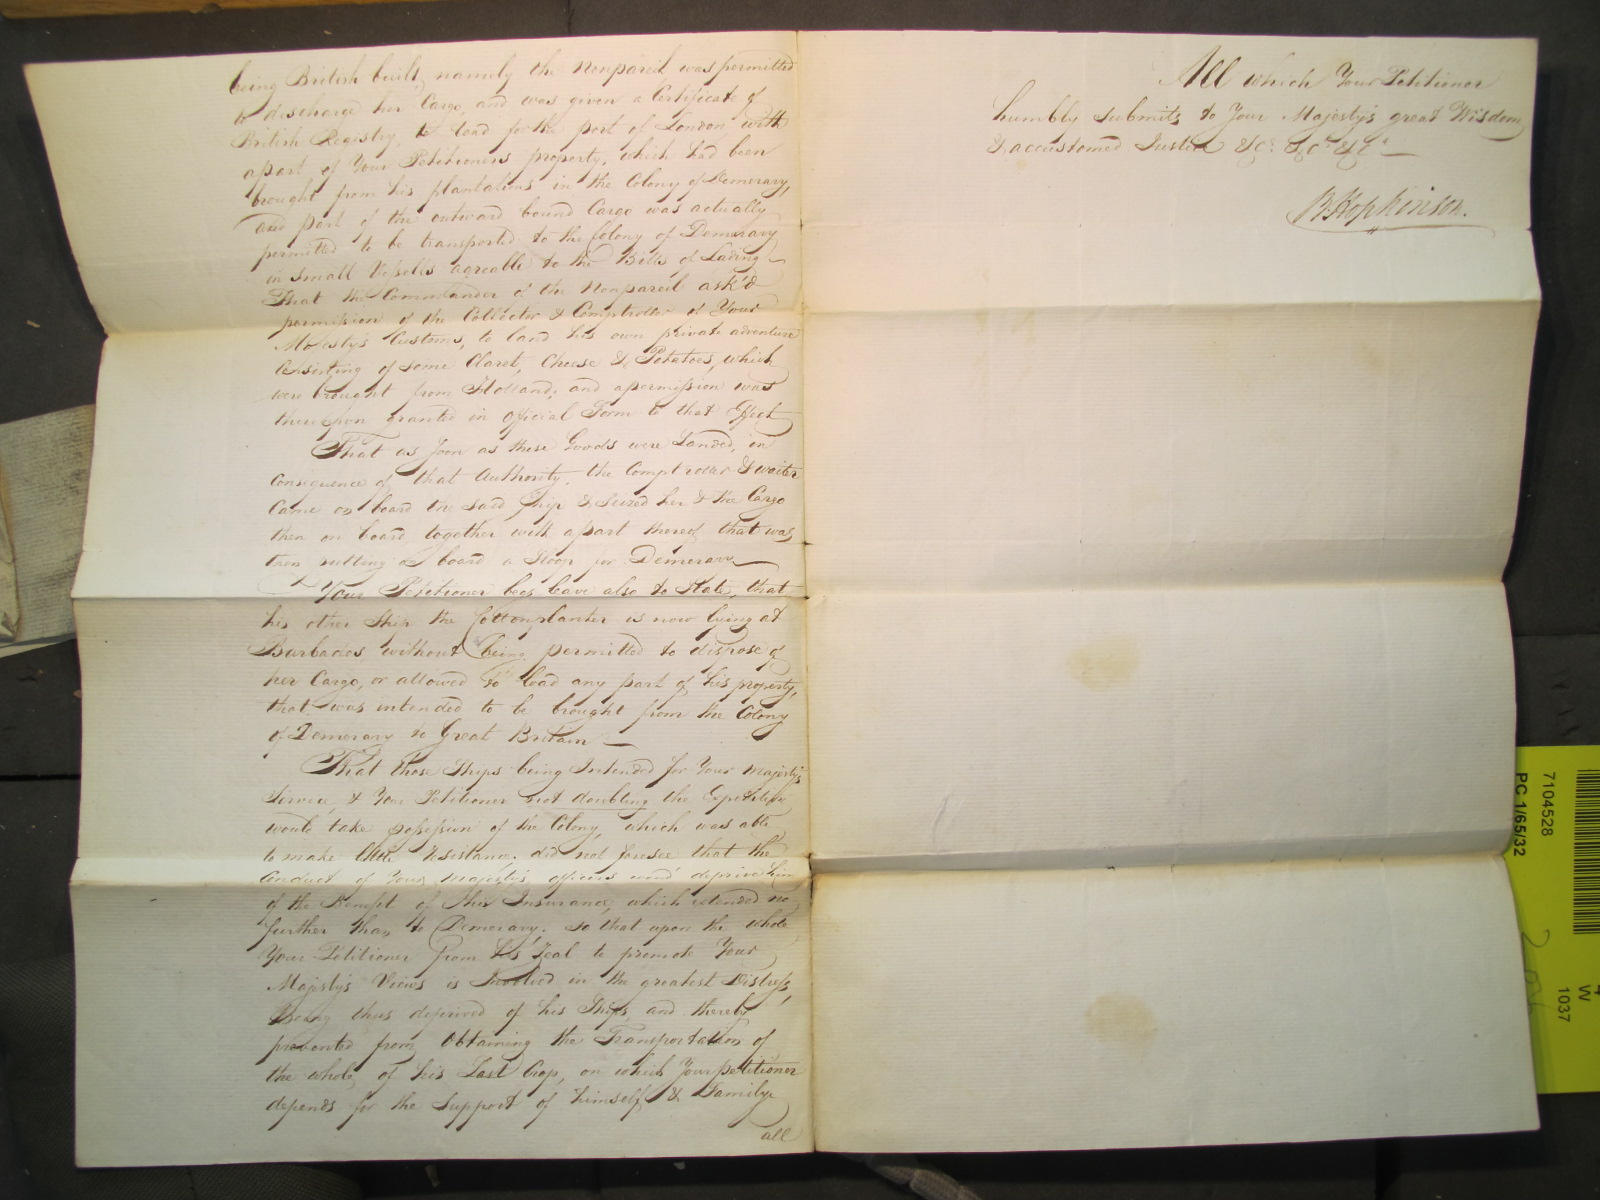 being British built, namely the Nonpareil was permitted
to discharge her Cargo, and was given a Certificate of
British Registry, to load for the port of London with
apart of Your Petitioners property, which had been
brought from his plantations in the Colony of Demerary,
and part of the outward bound Cargo was actually
permitted to be transported to the Colony of Demerary
in small Vessells agreable to the Bills of Lading
That the Commander of the Nonpareil ask'd
permission of the Collector & Comptroller of Your
Majestys Customs, to land his own private adventure
Consisting of some Claret, Cheese & Potatoes, which
were brought from Holland; and apermission was
thereupon granted in official Form to that Effect
That as soon as these Goods were Landed, in
Consequence of that Authority, the Comptroller & waiter
Came on board the said Ship & Seized her & the Cargo
then on board together with apart thereof that was
then putting on board a Sloop for Demerary
Your Petitioner begs leave also to State, that
his other Ship the Cottonplanter is now lying at
Barbados without being permitted to dispose of
her Cargo, or allowed to load any part of his property,
that was intended to be brought from the Colony
of Demerary to Great Britain
That those Ships being Intended for Your Majesty's
Service, & Your Petitioner not doubting the Expedition
would take possession of the Colony, which was able
to make little resistance, did not foresee that the
Conduct of Your Majesty's officers woud deprive him
of the Benefit of this Insurance, which extended no
further than to Demerary. so that upon the whole
Your Petitioner from his Zeal to promote Your
Majesty's Views is Involved in the greatest Distress,
Being thus deprived of his Ships, and thereby
prevented from Obtaining the Transportation of
the whole of his Last Crop, on which Your petitioner
depends for the Support of himself & Family
all
All which Your Petitioner
humbly submits to Your Majesty's great Wisdom
& accustomed Justice &c: &c: &c:
B Hopkinson.
7104528
PC 1/65/32
W
1037